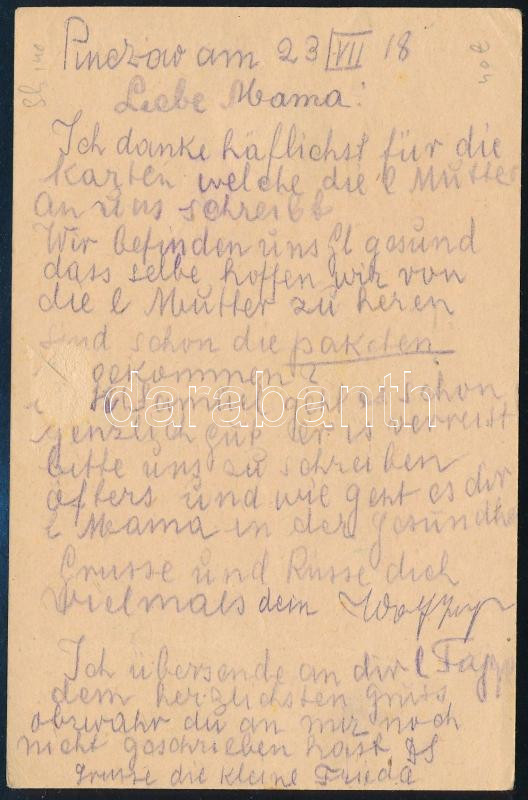 Pinczow am 23 VII 18
Liebe Mama!
Ich danke häflichst für die
karten welche die l Mutter
an uns schreibt
Wir befinden uns gl gesund
dass selbe hoffen wir von
die l Mutter zu heren
send schon die paketen
gekommen?
geht es schon
genzlich gut er is verreist
bitte uns zu schreiben
öfters und wie geht es dir
l Mama in der gesundhe
Grusse und Küsse dich
vielmals dein
Ich übersende an dir l
dem herzlichsten gruss
obzwahr du an mir noch
nicht geschrieben hast
grusse die kleine Frieda
darabanth
www.darabanth.com